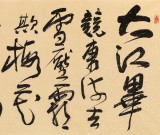 大江畢
競東流去
雪壓霜
欺梅花